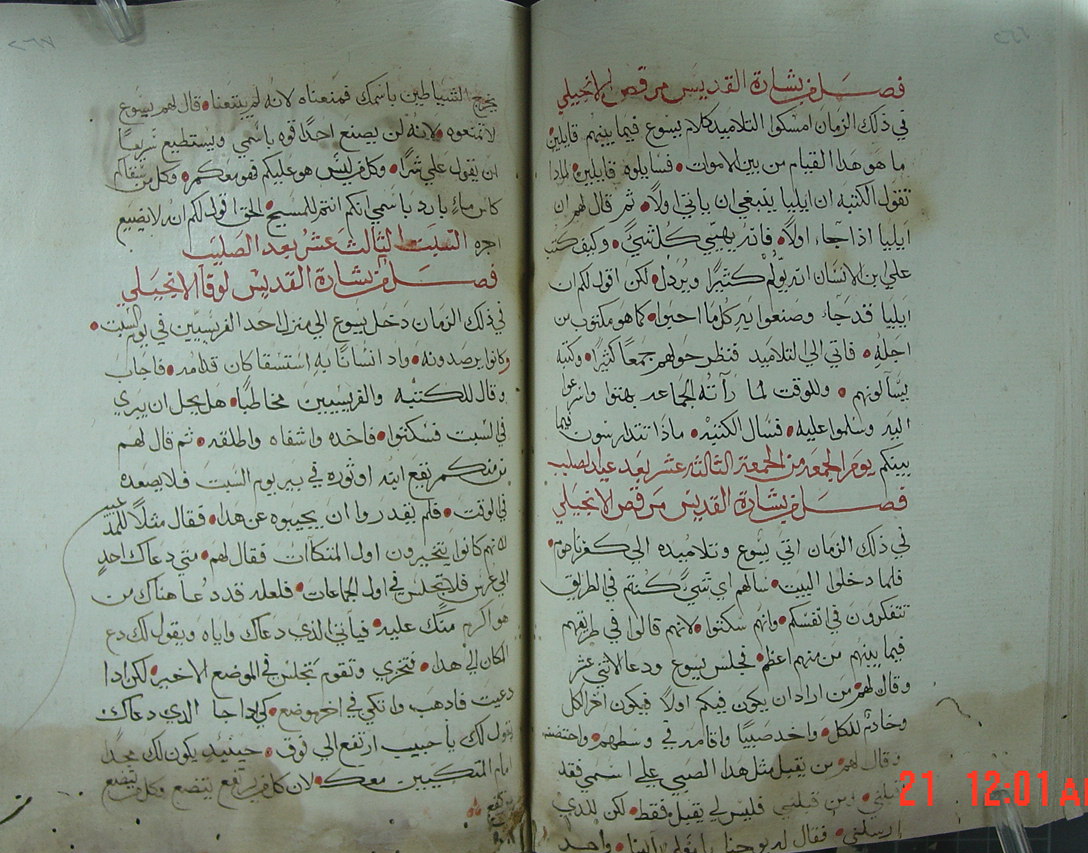 ٢٦٦
فصل من بشارة القديس مرقص الانجيلي
في ذلك الزمان امسكوا التلاميد كلام يسوع فيما بينهم قايلين
ما هو هدا القيام من بين الاموت • فسايلوه قايلين • لمادا
تقول الكتبه ان ايليا ينبغي ان ياتي اولاً • ثم قال لهم ان
ايليا اذا جاء اولاً • فانه يهيي كل شيً • وكيف كتب
علي ابن الانسان انه يولم كثيرًا ويردل • لكن اقول لكم ان
ايليا قد جاء وصنعوا به كلما احبوا • كما هو مكتوب من
اجله • فاتي الي التلاميد فنظر حولهم جمعًا كثيرًا • وكتبه
يسآلونهم • وللوقت لما رآته الجماعه بهتوا واسرعوا
اليه وسلموا عليه • فسال الكتبه • ماذا تتدارسون فيما
بينكم يوم الجمعه من الجمعة الثالثه عشر بعد عيد الصليب
فصل من بشارة القديس مرقص الانجيلي
في ذلك الزمان اتي يسوع وتلاميده الي كفرناحوم •
فلما دخلوا البيت • سالهم اي شيً كنتم في الطريق
تتفكرون في انفسكم • وانهم سكتوا • لانهم قالوا في طريقهم
فيما بينهم من منهم اعظم • فجلس يسوع ودعا الاثني عشر
وقال لهم • من اراد ان يكون فيكم اولاً فيكون اخر الكل
وخادم للكل • واخد صبيًا واقامه في وسطهم • واحتضنه
وقال لهم • من يقبل مثل هدا الصبي علي اسمي فقد
قبلني • ومن قبلني فليس لي يقبل فقط • لكن للدي
ارسلني • فقال له يوحنا يا معلم راينا واحد
٢٦٧
يخرج الشياطين باسمك فمنعناه لانه لم يتبعنا • قال لهم يسوع
لا تمنعوه • لانه لن يصنع احدًا قوه باسمي ويستطيع سريعًا
ان يقول علي شرًا • وكلمن ليس هو عليكم فهو معكم • وكل من سقاكم
كاس ماءٍ بارد باسمي انكم انتم للمسيح • الحق اقول لكم انه لا يضيع
اجره السبت الثالث عشر بعد الصليب
فصل من بشارة القديس لوقا الانجيلي
في ذلك الزمان دخل يسوع الي منزل احد الفريسيين في يوم السبت •
وكانوا يرصدونه • واد انسانًا به استسقا كان قدامه • فاجاب
وقال للكتبه والفريسيين مخاطبًا • هل يحل ان يبري
في السبت فسكتوا • فاخده واشفاه واطلقه • ثم قال لهم
من منكم يقع ابنه او ثوره في بير يوم السبت فلا يصعده
في الوقت • فلم يقدروا ان يجيبوه عن هدا • فقال مثلاً للمدعيين
لانهم كانوا يتخيرون اول المتكاات فقال لهم • متي دعاك احدٍ
الي عرس فلا تجلس في اول الجماعات • فلعله قد دعا هناك من
هو اكرم منك عليه • فياتي الذي دعاك واياه ويقول لك دع
المكان لهدا • فتخزي وتقوم تجلس في الموضع الاخير • لكن ادا
دعيت فادهب واتكي في اخر موضع • كي ادا جا الذي دعاك
يقول لك يا حبيب ارتفع الي فوق • حينيد يكون لك مجدًا
امام المتكيين معك • لان كلمن يرتفع يتضع وكلمن يتضع
يرتفع
21 12:01 A